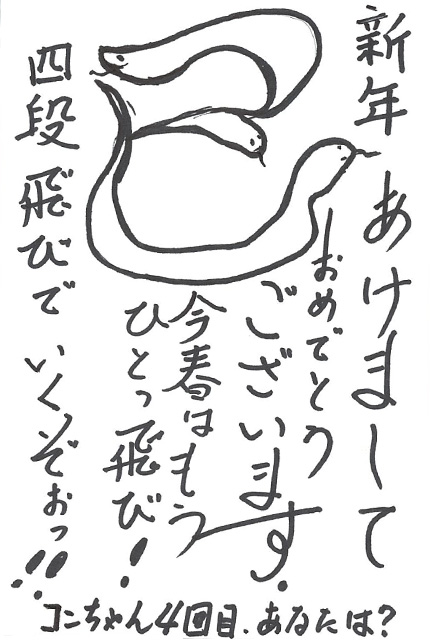 新年 あけまして
おめでとう
ございます.
今春はもう
ひとっ飛び!
四段飛びで いくっぞぉっ!!
コンちゃん4回目、あなたは?